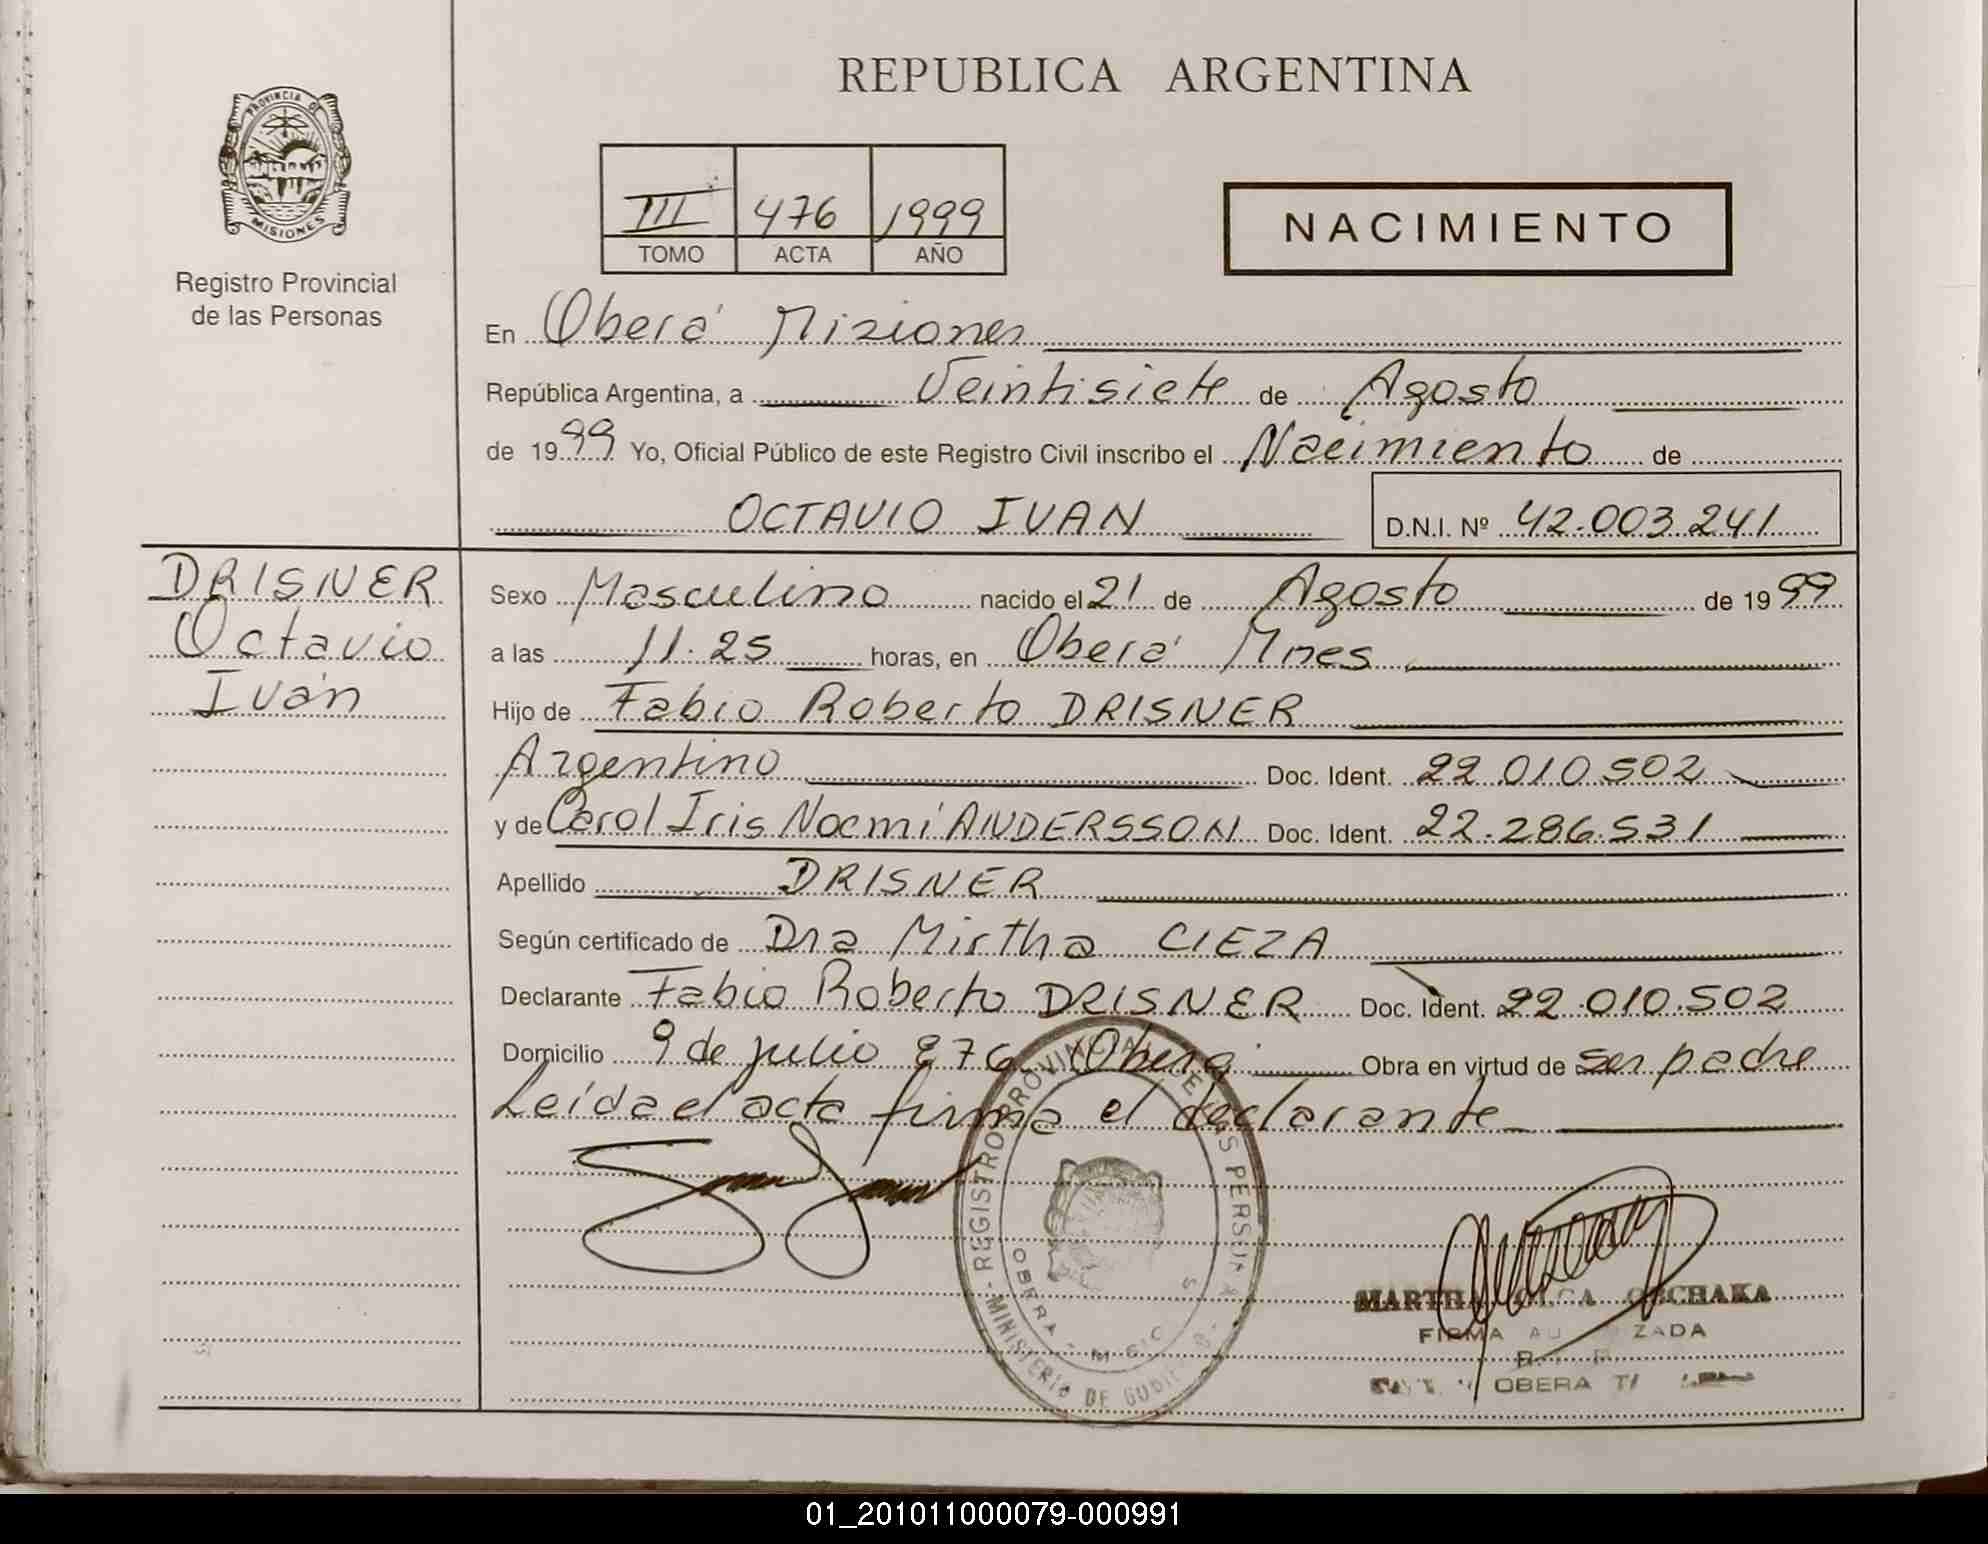 REPUBLICA ARGENTINA
PROVINCIA DE
MISIONES
Registro Provincial
de las Personas
III 476 1999
TOMO ACTA AÑO
NACIMIENTO
En Oberá Misiones
República Argentina, a Veintisiete de Agosto
de 1999 Yo, Oficial Público de este Registro Civil inscribo el Nacimiento de
OCTAVIO IVAN D.N.I. Nº 42.003.241
DRISNER
Octavio
Iván
Sexo Masculino nacido el 21 de Agosto de 1999
a las 11.25 horas, en Oberá Mnes
Hijo de Fabio Roberto DRISNER
Argentino Doc. Ident. 22.010.502
y de Carol Iris Noemí ANDERSSON Doc. Ident. 22.286.531
Apellido DRISNER
Según certificado de Dra Mirtha CIEZA
Declarante Fabio Roberto DRISNER Doc. Ident. 22.010.502
Domicilio 9 de julio 876 Oberá Obra en virtud de ser padre
Leída el acta firma el declarante
REGISTRO PROVINCIAL DE LAS PERSONAS
MINISTERIO DE
OBERA
MARTHA OLGA
FIRMA AUTORIZADA
OBERA
01_201011000079-000991